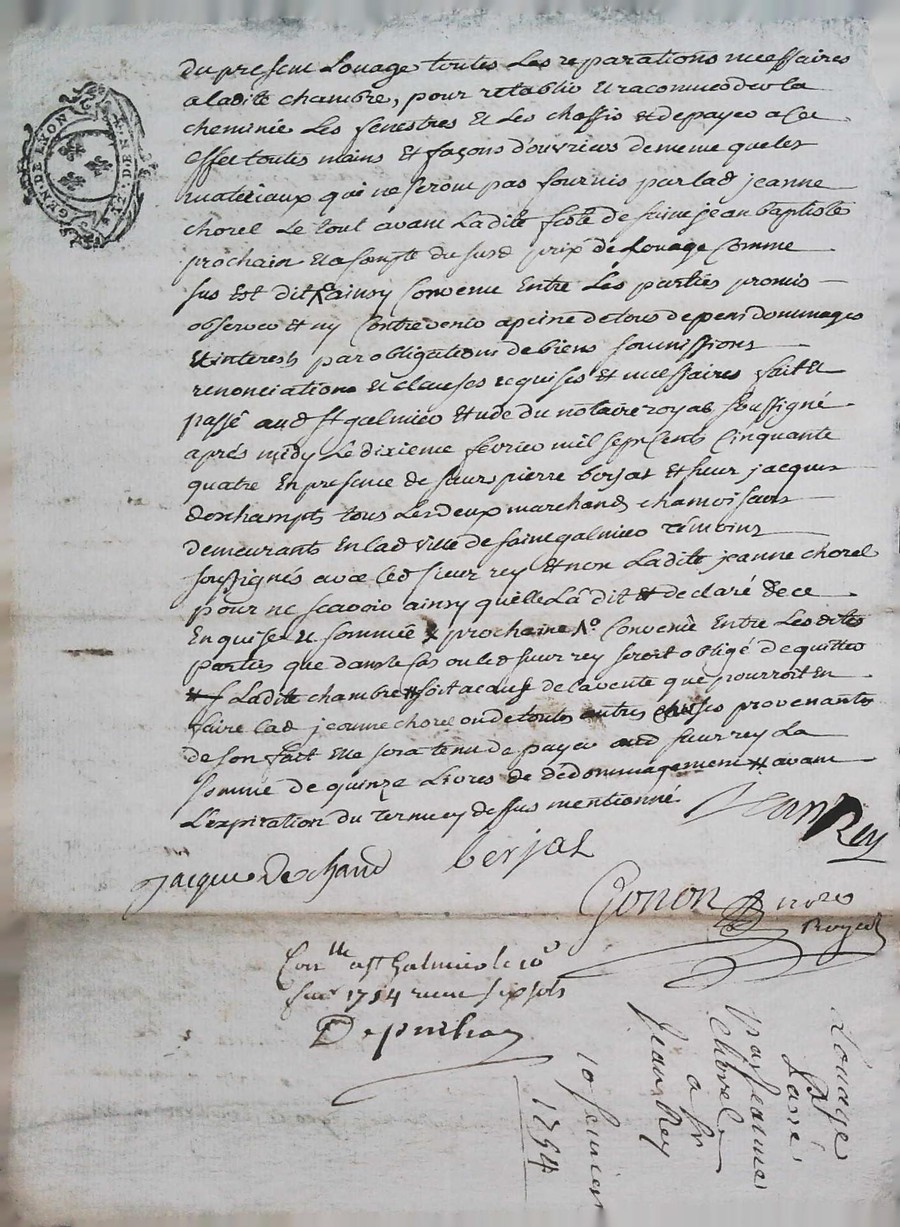 du present Louage toutes Les reparations necessaires
a ladite chambre, pour retablir et racomoder la
cheminée Les fenestres et Les chassis et de payer a cet
effet toutes mains et façons d'ouvriers de meme que les
materiaux qui ne seront pas fournis par lad jeanne
chorel Le tout avant Ladite feste de saint jean baptiste
prochain et a Compte du susd prix de Louage Comme
sus Est dit ainsy Convenu Entre Les parties promis
observer et ny Contrevenir a peine de tous depens dommages
et interests par obligations de biens soumissions
renonciations et clauses requises et necessaires fait et
passé aud st galmier Etude du notaire royal soussigné
aprés midy Le dixieme fevrier mil sept cents Cinquante
quatre En presence de sieurs pierre berjat et sieur jacques
deschamps tous Les deux marchands chamoiseurs
demeurants En lad ville de saint galmier temoins
soussignés avec led sieur rey et non Ladite jeanne chorel
pour ne scavoir ainsy quelle La dit et declaré de ce
Enquise et sommée prochaine Convenû Entre Les dites
parties que dans le Cas ou led sieur rey seroit obligé de quitter
Ladite chambre soit a cause de la vente que pourroit En
faire lad jeanne chorel ou de toutes autres choses provenants
de son fait Elle sera tenue de payer aud sieur rey La
somme de quinze Livres de dedommagement avant
L'expiration du terme cy dessus mentionné
Jean Rey
Jacque Dechand berjat
Gonon nore
Royal
Con lle a st Galmier le 10e
fer 1754 receu six sols
Depuihaz
Louage
Passé
par Jeanne
Chorel
a sr
Jean Rey
10 fevrier
1754
GEN. DE LYON